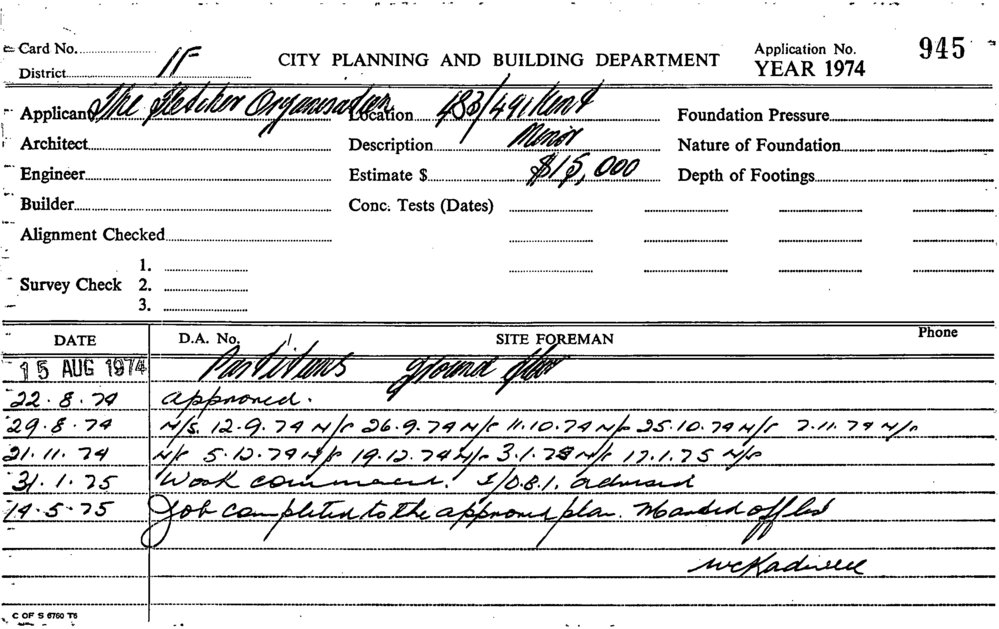 Card No. Application No. 945
District 1F CITY PLANNING AND BUILDING DEPARTMENT YEAR 1974
Applicant The Fletcher Organisation Location 483/491 Kent Foundation Pressure
Architect Description Minor Nature of Foundation
Engineer Estimate $ $15,000 Depth of Footings
Builder Conc. Tests (Dates)
Alignment Checked
1.
Survey Check 2.
3.
DATE D.A. No. SITE FOREMAN Phone
15 AUG 1974 Partitions ground floor
22.8.74 approved.
29.8.74 N/S. 12.9.74 N/S 26.9.74 N/S 11.10.74 N/S 25.10.74 N/S 7.11.74 N/S
21.11.74 N/S 5.12.74 N/S 19.12.74 N/S 3.1.75 N/S 17.1.75 N/S
31.1.75 Work commenced. D.B.I. advised
14.5.75 Job completed to the approved plan. Marked off list
C OF S 6760 T5